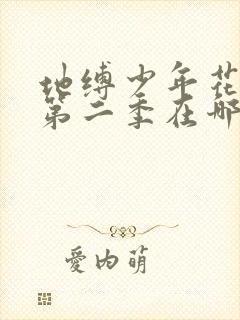 地缚少年花
第二季在哪
愛内萌